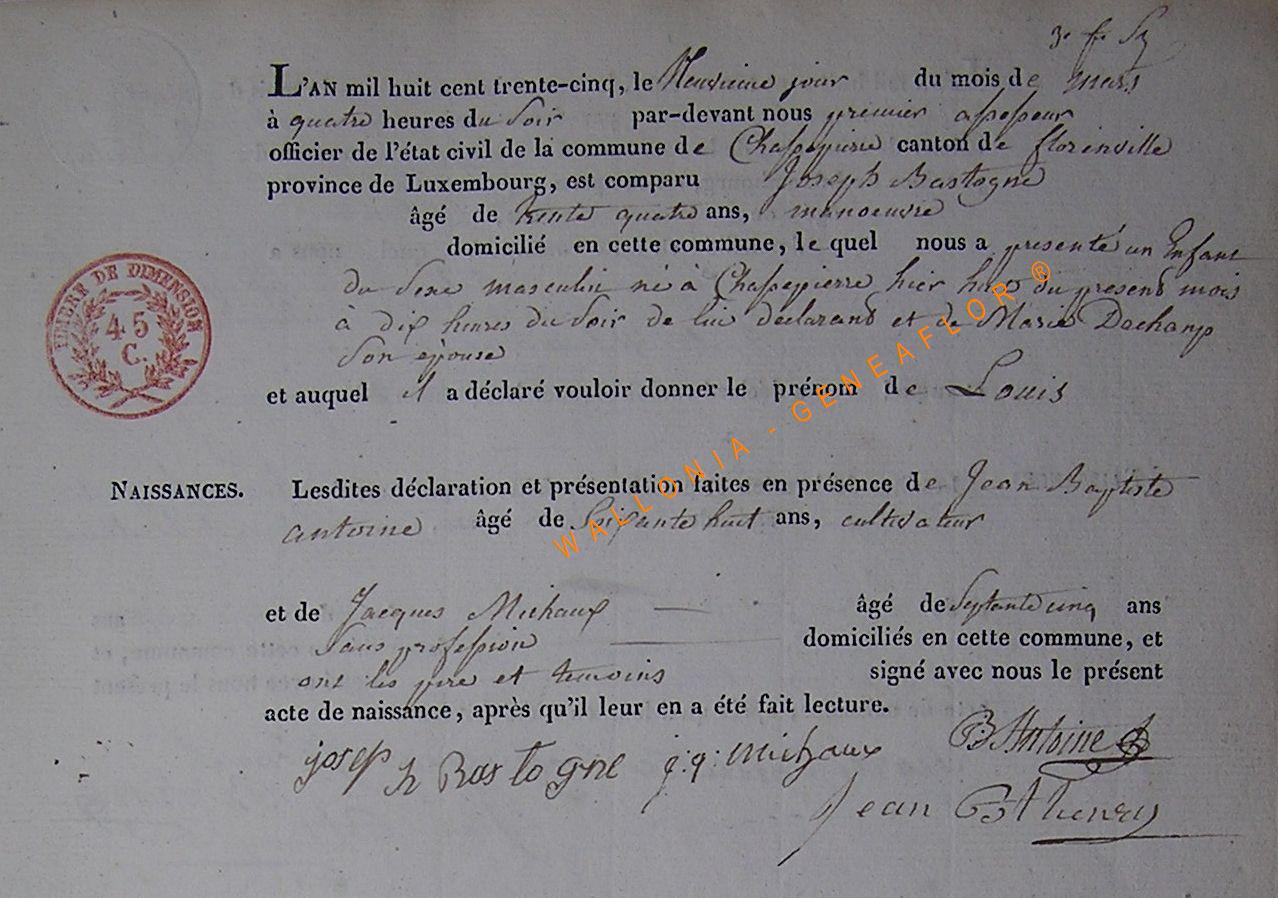 3. f. S
L'AN mil huit cent trente-cinq, le Neuvieme jour du mois de mars
à quatre heures du Soir par-devant nous premier assesseur
officier de l'état civil de la commune de Chassepierre canton de florenville
province de Luxembourg, est comparu Joseph Bastogne
âgé de trente quatre ans, manoeuvre
domicilié en cette commune, le quel nous a presenté un Enfant
du Sexe masculin né à Chassepierre hier huit du present mois
à dix heures du Soir de lui declarant et de Marie Dechamp
Son épouse
et auquel il a déclaré vouloir donner le prénom de Louis
TIMBRE DE DIMENSION
45
C.
NAISSANCES. Lesdites déclaration et présentation faites en présence de Jean Baptiste
antoine âgé de Soixante huit ans, cultivateur
et de Jacques Michaux âgé de Septante cinq ans
Sans profession domiciliés en cette commune, et
ont les pere et temoins signé avec nous le présent
acte de naissance, après qu'il leur en a été fait lecture.
joseph Bastogne j: q: michaux B Antoine
Jean Bt henry
WALLONIA - GENEAFLOR ®